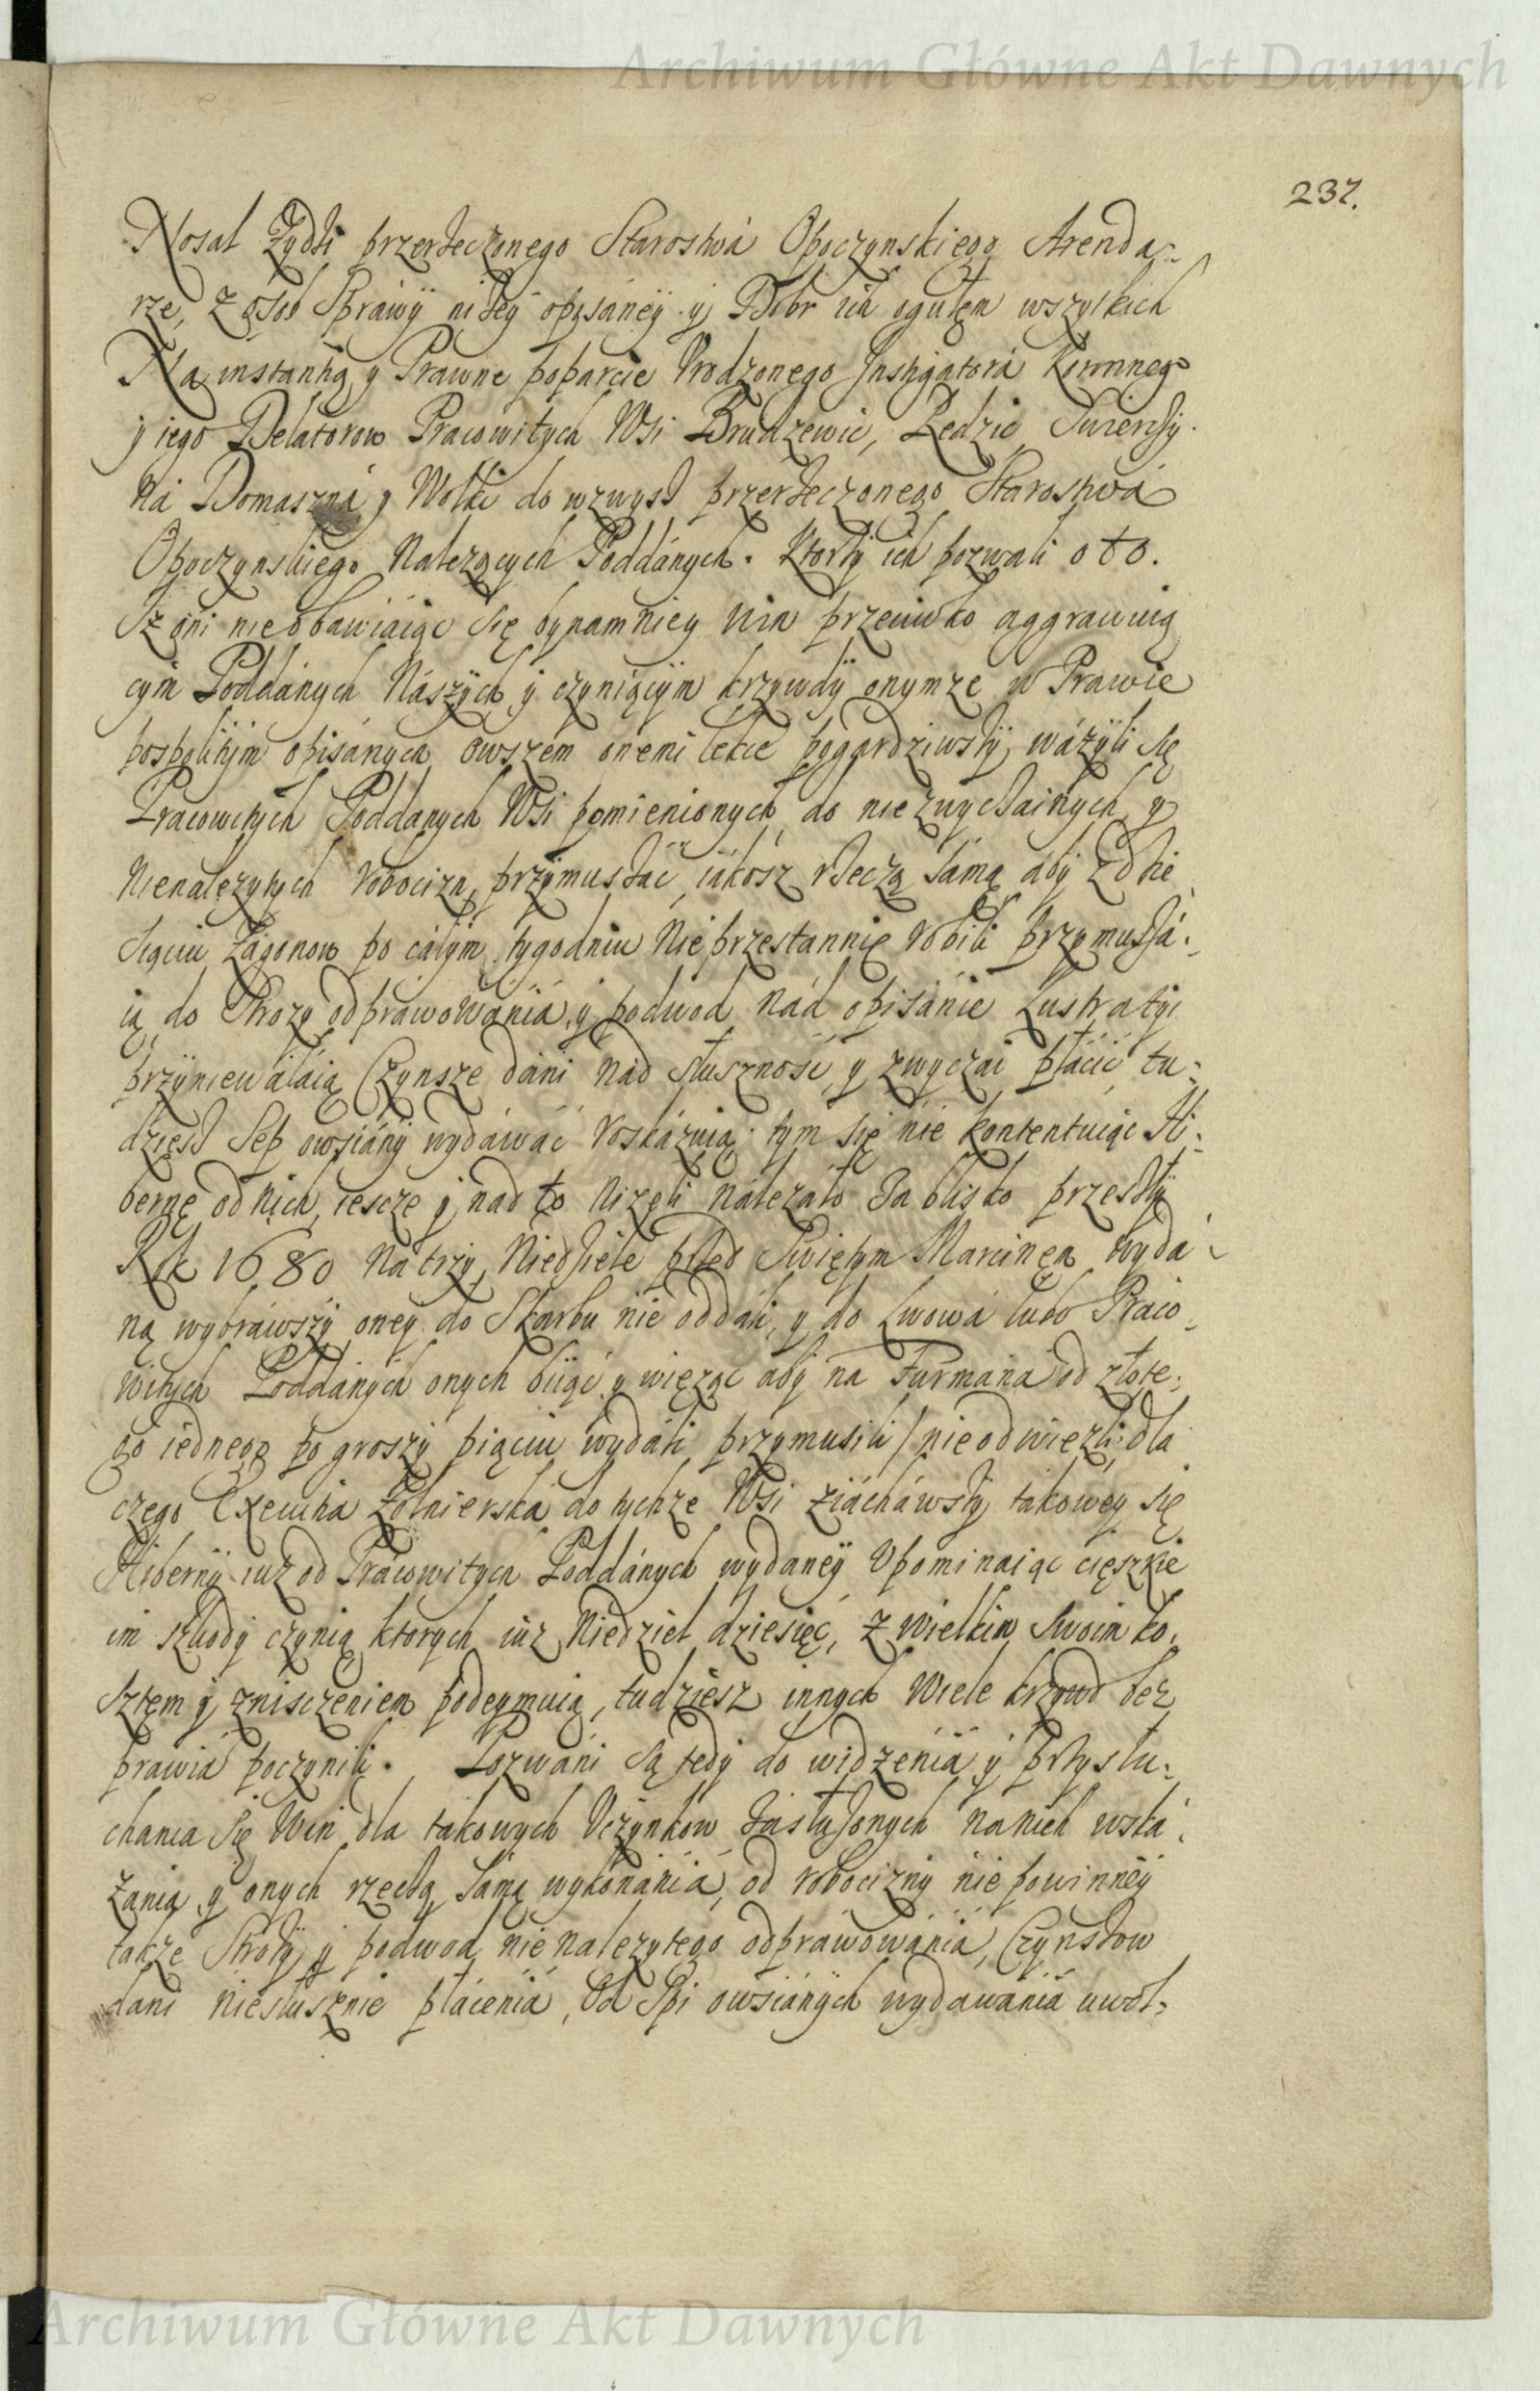 Archiwum Główne Akt Dawnych
237.
Nosal Żydki przerzeczonego Starostwá Opoczynskiego Arenda:
rze, z osob Spráwÿ niżeÿ opisáneÿ y Dobr ich ogułem wszytkich
Na instantią y Prawne poparcie Urodzonego Instigatorá Koronnego
y iego Delatorow Pracowitych Wsi Brudzewic, Ledzic
ná Domaszná y Wolki do wzwysz przerzeczonego Starostwá
Opoczynskiego Nalezących Poddánych. Ktorzy ich pozwali o to.
Iz oni nieobawiáiąc się bynamniey Win przeciwko aggrawuią
cym Poddánych Nászÿch y czyniącÿm krzywdÿ onymze w Prawie
pospolitÿm opisánych owszem onemi lekce pogardziwszÿ wáżÿli się
Pracowitych Poddanych Wsi pomienionych do niezwyczainych y
Nienależytych robocizn przÿmuszáć iákosz rzeczą sámą abÿ z dzie
siąciu Zágonow po cáłÿm tygodniu Nieprzestannie robili przymuszá:
ią do Strozy odpráwowániá y podwod nád opisánie Lustratÿi
przÿniewaláią Czynsze dáni nád słusznosć y zwyczái płácić tu:
dziesz Sep owsiánÿ wydáwáć roskázuią tym się nie kontentuiąc Hi:
bernę od nich ieszcze y nad to nizeli nálezáło Za blisko przeszłÿ
Rok 1680 na trzÿ Niedziele przed Swiętym Marcinem wydá:
ną wybráwszÿ oneÿ do Skarbu nie oddáli, y do Lwowá lubo Praco:
witych Poddánych onych biiąc y więżąc abÿ na Furmána od złote:
go iednego po groszÿ piąciu wydáli przymusili / nie odwiezli: dla
czego Exekutia Zołnierská do tychze Wsi ziáchawszÿ takoweÿ się
Hibernÿ iuz od Prácowitych Poddánych wydaneÿ Upominaiąc cięszkie
im szkodÿ czynią ktorych iuz Niedziel dziesięć, z wielkim Swoim ko:
sztem y zniszczeniem podeymuią, tudziesz innych Wiele krzywd bez
prawiá poczynili. Pozwáni są tedÿ do widzeniá ÿ przysłu:
chania się Win dla takowych Uczÿnkow zasłużonych na nich wská:
zania y onych rzeczą sámą wykonániá, od robociznÿ niepowinneÿ
takze Strozÿ y podwod nienalezytego odpráwowániá, Czynszow
dani niesłusznie płáceniá, Od Spi owsiánÿch wydawániá uwol:
Archiwum Główne Akt Dawnych